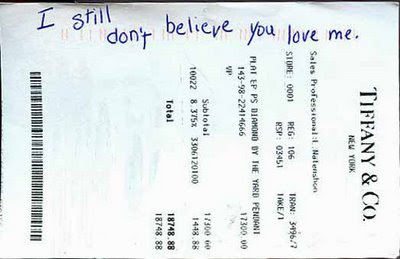 I still
don't believe you love me.
TIFFANY & CO.
NEW YORK
Sales Professional:L.Natenshon
STORE: 0001 REG: 106 TRAN: 3496/7
RSP: 03451 TAKE/1
PLAT EP PS DIAMOND BY THE YARD PENDANT
143-98-22414666 17300.00
VP
Subtotal 17300.00
10022 8.375% 330&120100 1448.88
Total 18748.88
18748.88